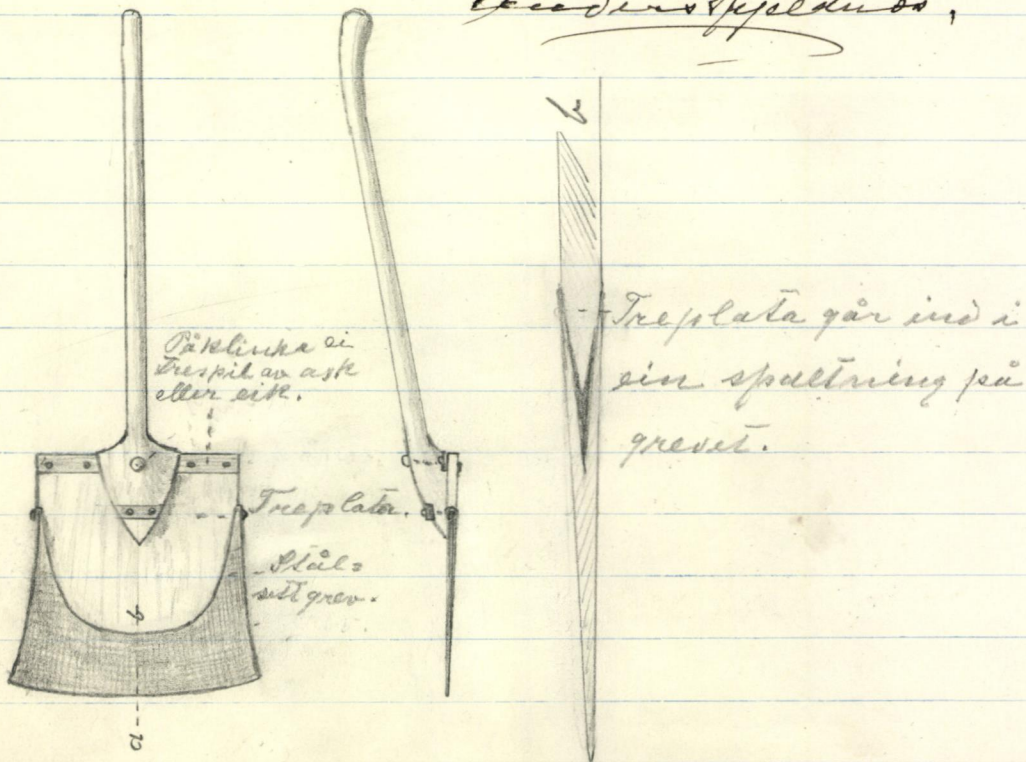 Anders
Påklinka ei
trespil av ask
eller eik.
Treplata.
Stål=
sett grev.
Treplata går ind i
ein spaltning på
grevet.